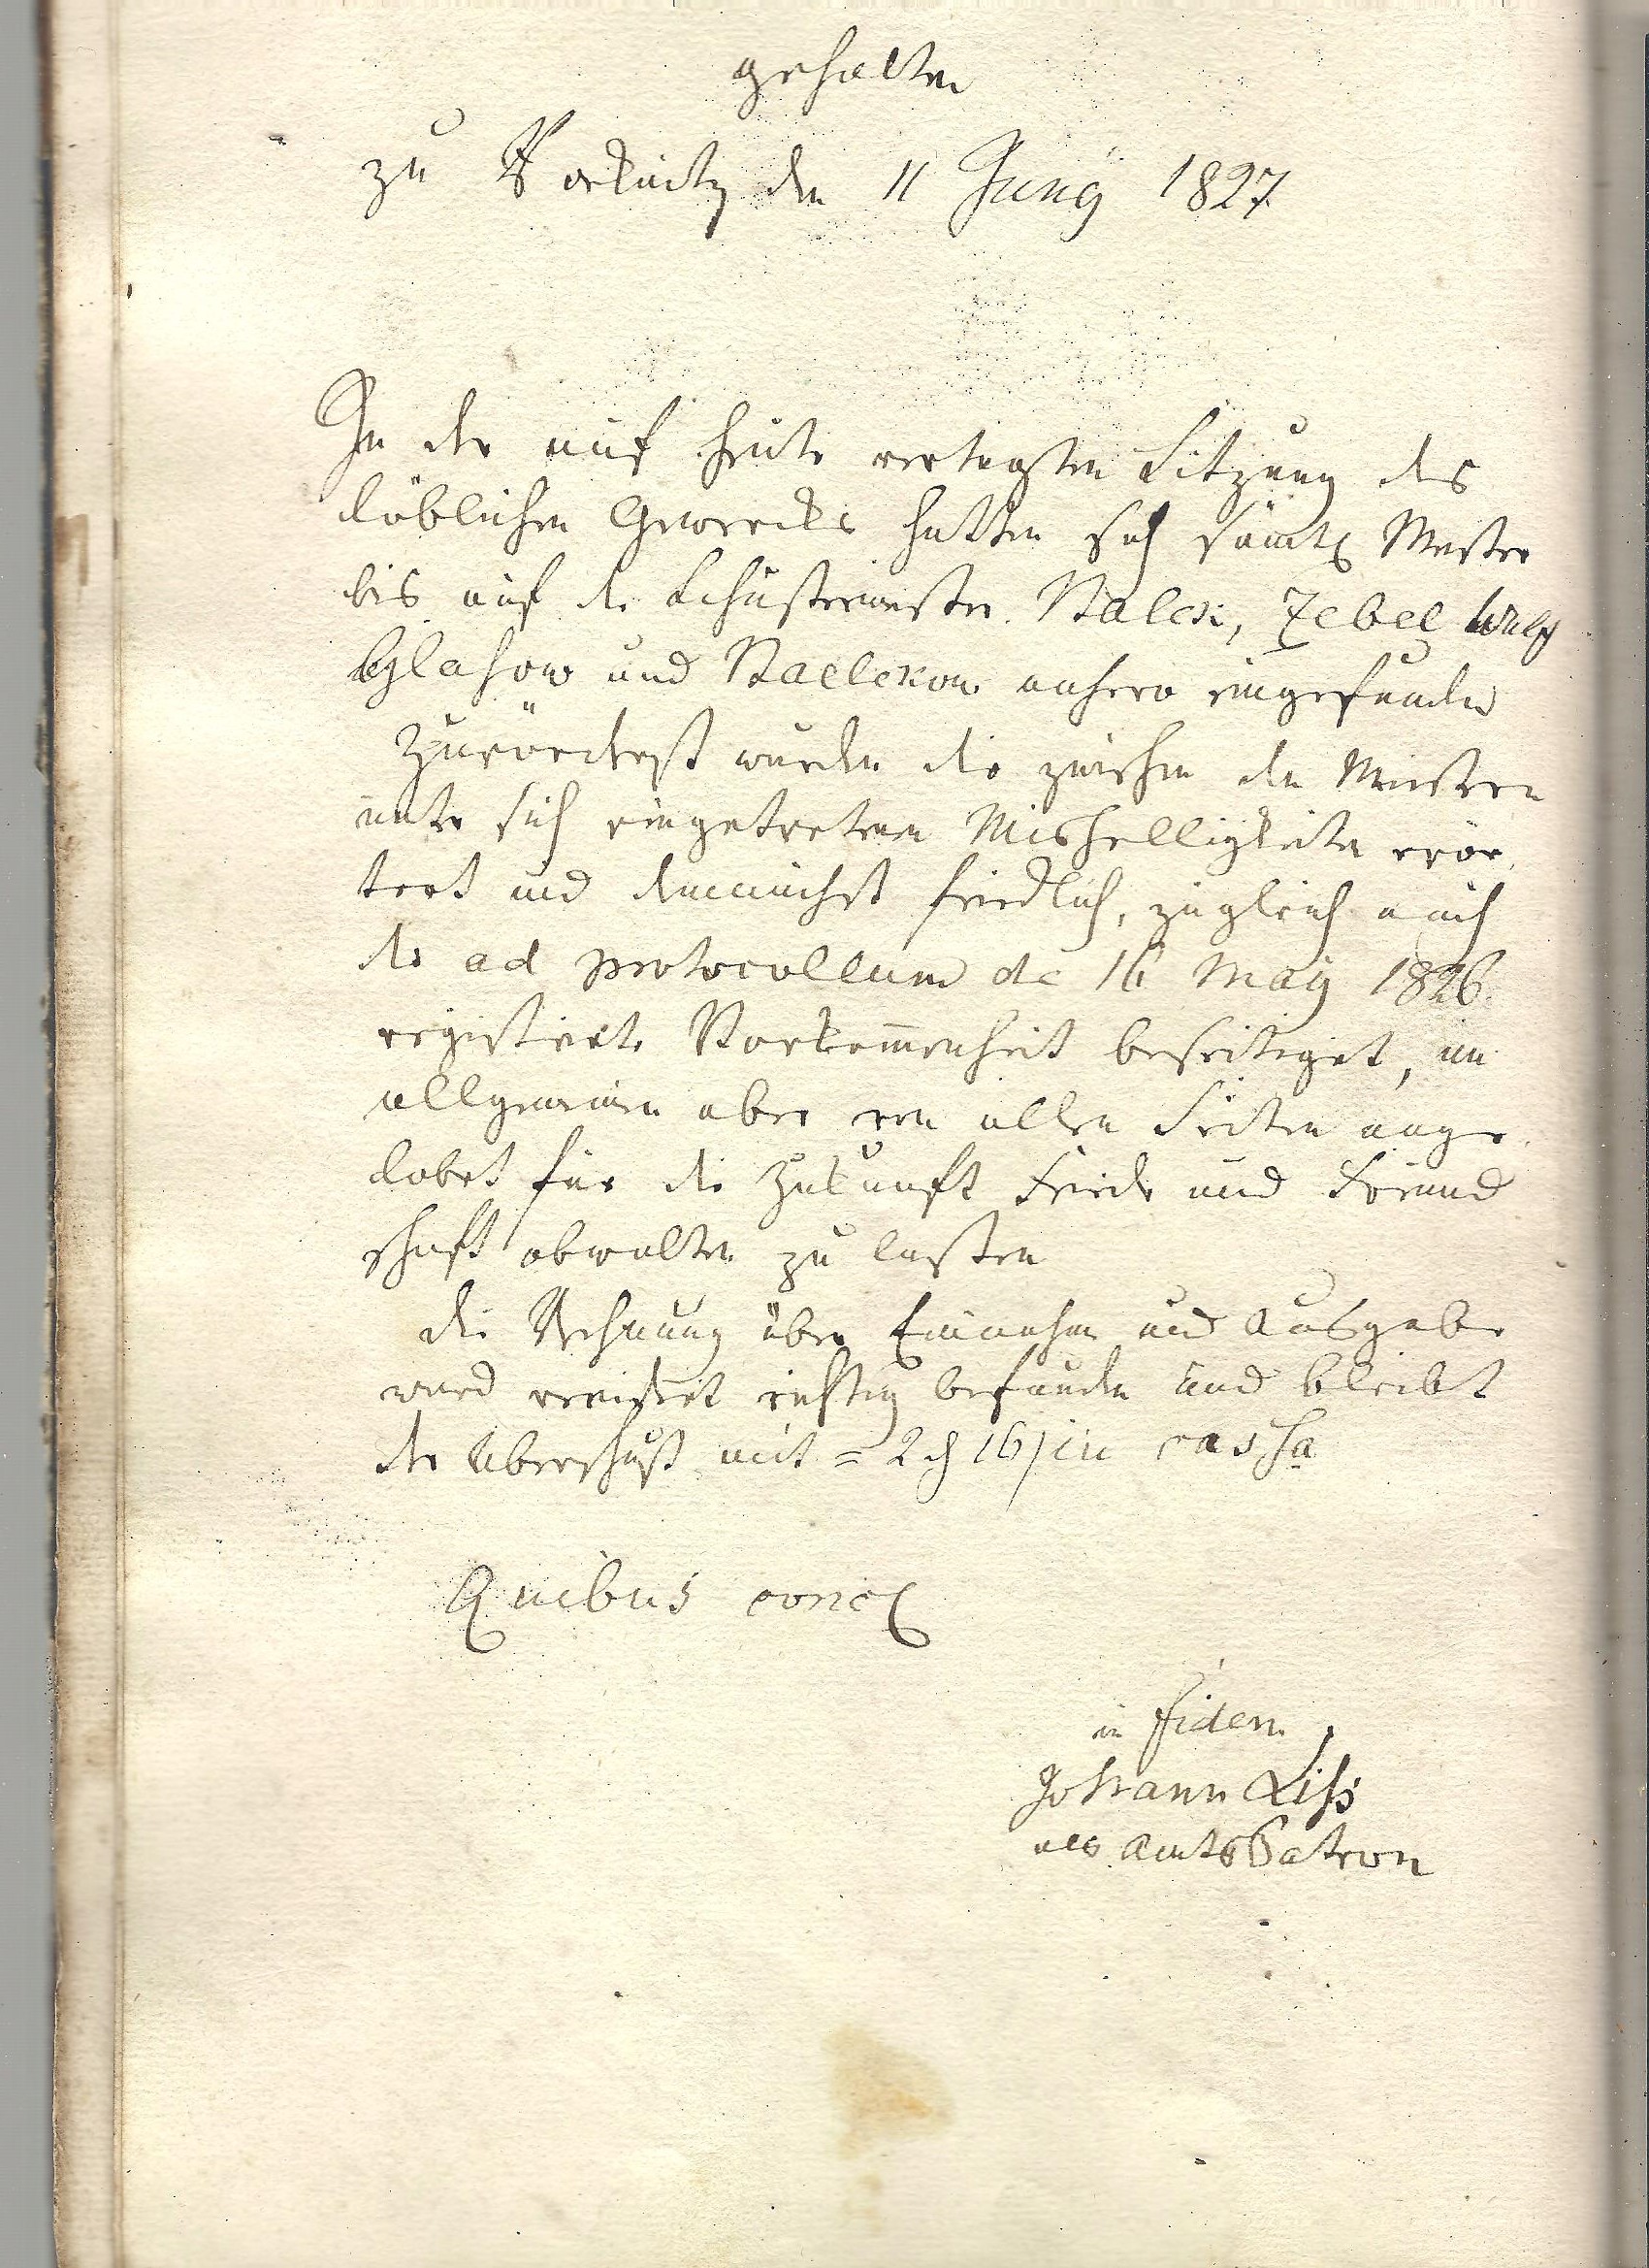 gehalten
zu den 11 Juny 1827.
In der auf heute vertagten Sitzung des
löblichen Gewercks hatten sich sämtl Meister
bis auf die Schustermeister Zebel Wulff
Glasow und anhero eingefunden
Zuvörderst wurden die zwischen den Meistern
unter sich eingetretenen Mishelligkeiten erör
tert und demnächst friedlich, zugleich auch
die ad protocollum de 16 May 1826.
registrirte Vorkommenheit beseitiget, im
allgemeinen aber von allen Seiten ange
lobet für die Zukunft Friede und Freund
schaft obwalten zu lassen
die Rechnung über Einnahme und Ausgabe
ward revidirt richtig befunden und bleibt
der Überschuß mit = 2 16 in cassa
Quibus concl
in fidem
Johann Liss
als Amts Patron